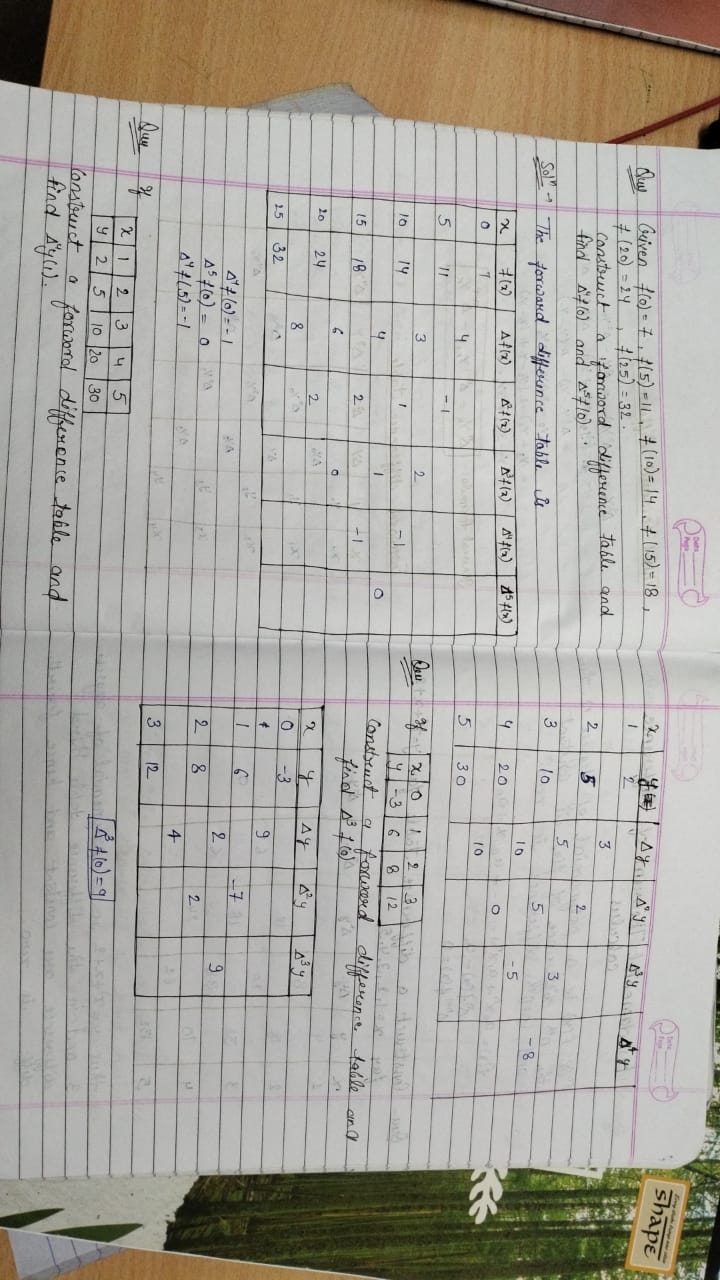 Date
Page
Ques Given f(0) = 7 , f(5) = 11 , f(10) = 14 , f(15) = 18 ,
f(20) = 24 , f(25) = 32 .
construct a forward difference table and
find Δ⁴f(0) and Δ⁵f(0) .
Solⁿ → The forward difference table is
x f(x) Δf(x) Δ²f(x) Δ³f(x) Δ⁴f(x) Δ⁵f(x)
0 7
4
5 11 -1
3 2
10 14 1 -1
4 1 0
15 18 2 -1
6 0
20 24 2
8
25 32
Δ⁴f(0) = -1
Δ⁵f(0) = 0
Δ⁴f(5) = -1
Ques If
x 1 2 3 4 5
y 2 5 10 20 30
Construct a forward difference table and
find Δ⁴y(1).
Date
Page
x y Δy Δ²y Δ³y Δ⁴y
1 2
3
2 5 2
5 3
3 10 5 -8
10 -5
4 20 0
10
5 30
Ques If
x 0 1 2 3
y -3 6 8 12
Construct a forward difference table and
find Δ³ f(0)
x y Δy Δ²y Δ³y
0 -3
9
1 6 -7
2 9
2 8 2
4
3 12
Δ³ f(0) = 9
shape